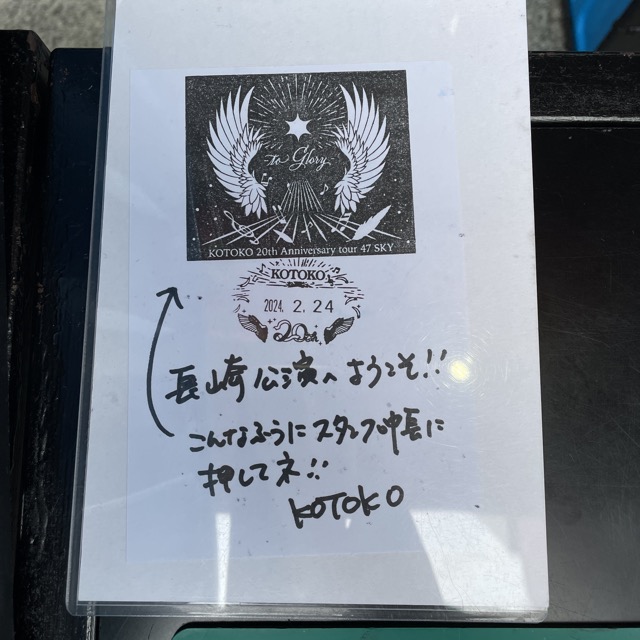 To Glory
KOTOKO 20th Anniversary tour 47 SKY
KOTOKO
2024. 2. 24
20th
長崎公演へようこそ!!
こんなふうにスタンプ帳に
押してネ!!
KOTOKO